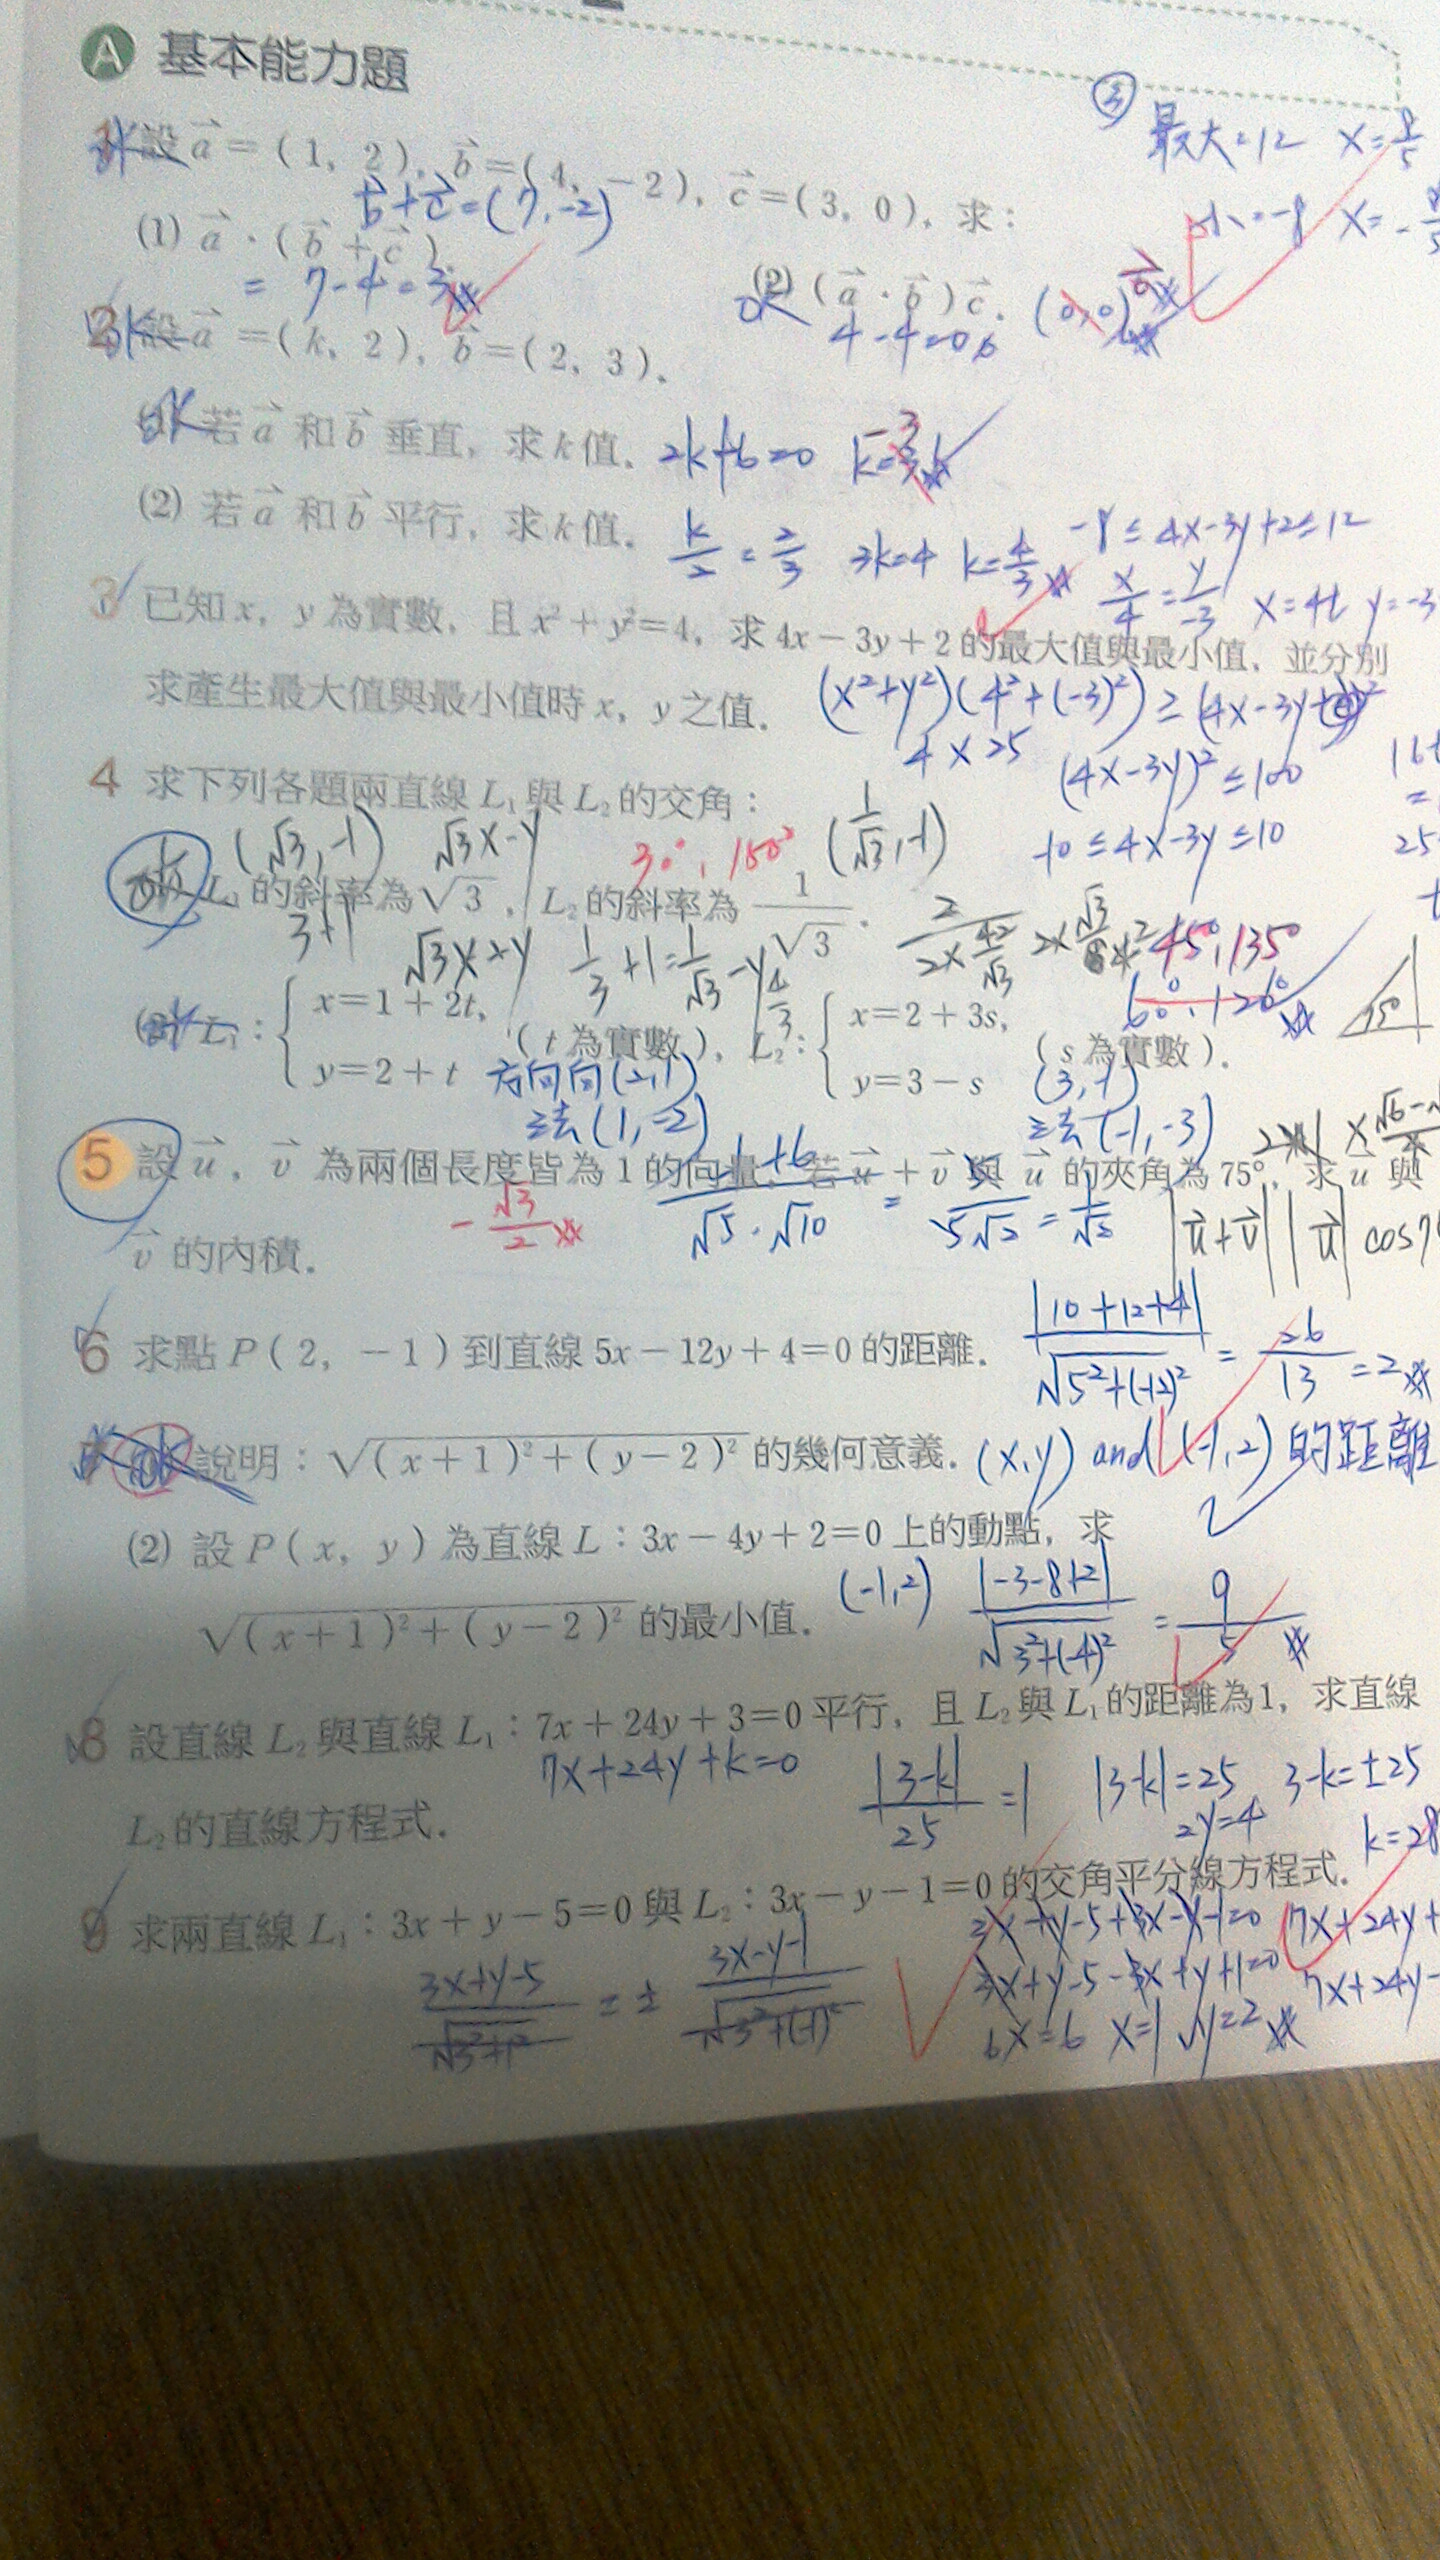 A 基本能力題
③ 最大=12 x=8/5
設 a⃗ =(1, 2), b⃗ =(4, -2), c⃗ =(3, 0), 求：
b⃗+c⃗=(7,-2)
(1) a⃗ · ( b⃗ + c⃗ )
= 7-4=3
(2) ( a⃗ · b⃗ ) c⃗ . (0,0) 0⃗
4-4=0
2 設 a⃗ =( k, 2 ), b⃗ =( 2, 3 ).
若 a⃗ 和 b⃗ 垂直, 求 k 值. 2k+6=0 k=-3
(2) 若 a⃗ 和 b⃗ 平行, 求 k 值. k/2 = 2/3 3k=4 k=4/3
-8≤4x-3y+2≤12
x/4 = y/-3 x=4t y=-3
3 已知 x, y 為實數, 且 x²+y²=4, 求 4x-3y+2 的最大值與最小值, 並分別
求產生最大值與最小值時 x, y 之值.
(x²+y²)(4²+(-3)²)≥(4x-3y)²
4×25 (4x-3y)²≤100
-10≤4x-3y≤10
4 求下列各題兩直線 L₁ 與 L₂ 的交角：
(√3,-1) √3x-y 30°, 150° (1/√3,-1)
L₁ 的斜率為 √3, L₂ 的斜率為 1/√3.
3+1
45°,135°
(2) L₁：{ x=1+2t, y=2+t ( t 為實數 ), L₂：{ x=2+3s, y=3-s ( s 為實數 ).
方向向(2,1) (3,-1)
法(1,-2) 法(-1,-3)
5 設 u⃗, v⃗ 為兩個長度皆為 1 的向量, 若 u⃗ + v⃗ 與 u⃗ 的夾角為 75°, 求 u⃗ 與
v⃗ 的內積.
-√3/2
-1+6/√5·√10 = 5/5√2 = 1/√2
|u⃗+v⃗||u⃗| cos7
6 求點 P( 2, -1 ) 到直線 5x-12y+4=0 的距離.
|10+12+4|/√5²+(-12)² = 26/13 =2
說明：√( x+1 )²+( y-2 )² 的幾何意義. (x,y) and (-1,2) 的距離
(2) 設 P( x, y ) 為直線 L：3x-4y+2=0 上的動點, 求
√( x+1 )²+( y-2 )² 的最小值.
(-1,2) |-3-8+2|/√3²+(-4)² = 9/5
8 設直線 L₂ 與直線 L₁：7x+24y+3=0 平行, 且 L₂ 與 L₁ 的距離為1, 求直線
L₂ 的直線方程式.
7x+24y+k=0 |3-k|/25 =1 |3-k|=25 3-k=±25
k=28
2y=4
9 求兩直線 L₁：3x+y-5=0 與 L₂：3x-y-1=0 的交角平分線方程式.
3x+y-5/√3²+1² = ± 3x-y-1/√3²+(-1)²
3x+y-5+3x-y-1=0 7x+24y+
3x+y-5-3x+y+1=0 7x+24y-
6x=6 x=1 y=2